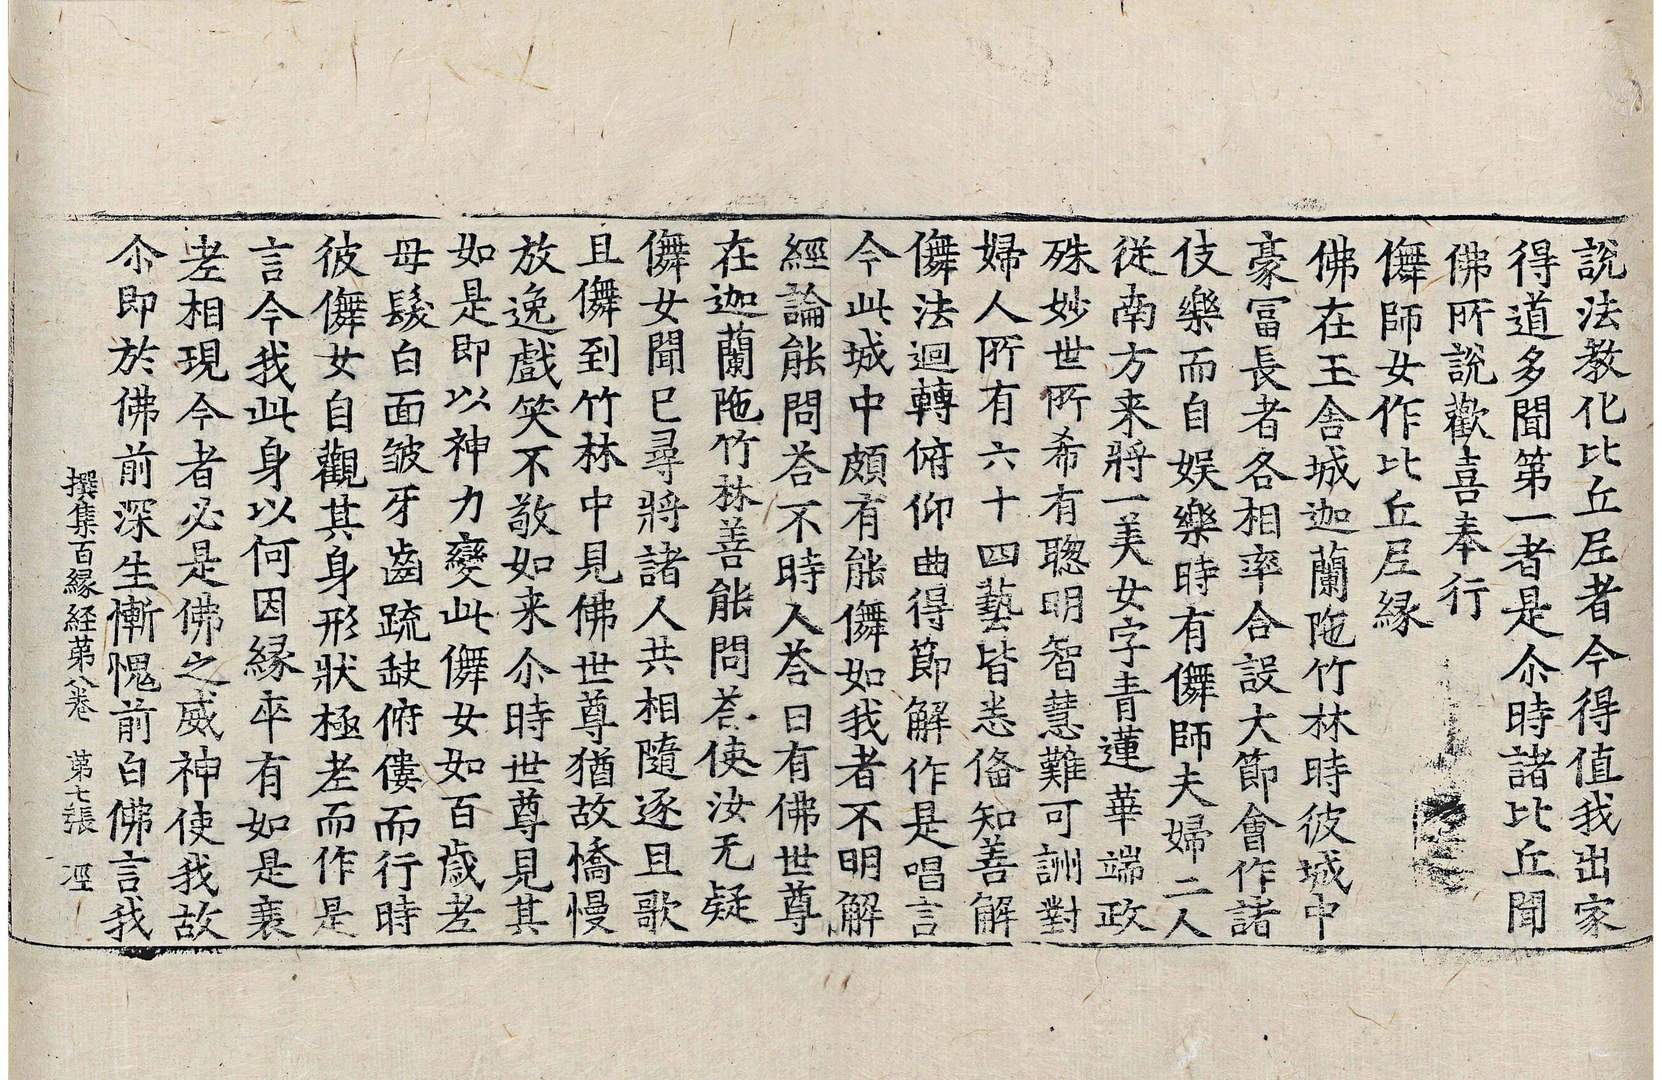 說法教化比丘𡰱者今得值我出家
得道多聞第一者是尒時諸比丘聞
佛所說歡喜奉行
儛師女作比丘𡰱緣
佛在王舍城迦蘭陁竹林時彼城中
豪富長者各相率合設大節會作諸
伎樂而自娛樂時有儛師夫婦二人
從南方来將一美女字青蓮華端政
殊妙世所希有聰明智慧難可詶對
婦人所有六十四藝皆悉俻知善解
儛法迴轉俯仰曲得節解作是唱言
今此城中頗有能儛如我者不明解
經論能問荅不時人荅曰有佛世尊
在迦蘭陁竹林善能問荅使汝无疑
儛女聞已尋將諸人共相隨逐且歌
且儛到竹林中見佛世尊猶故憍慢
放逸戲笑不敬如来尒時世尊見其
如是即以神力變此儛女如百歲老
母髮白面皺牙齒踈缺俯僂而行時
彼儛女自觀其身形狀極老而作是
言今我此身以何因緣卒有如是衰
老相現今者必是佛之威神使我故
尒即於佛前深生慚愧前白佛言我
撰集百緣経苐八卷 第七張 𢀖